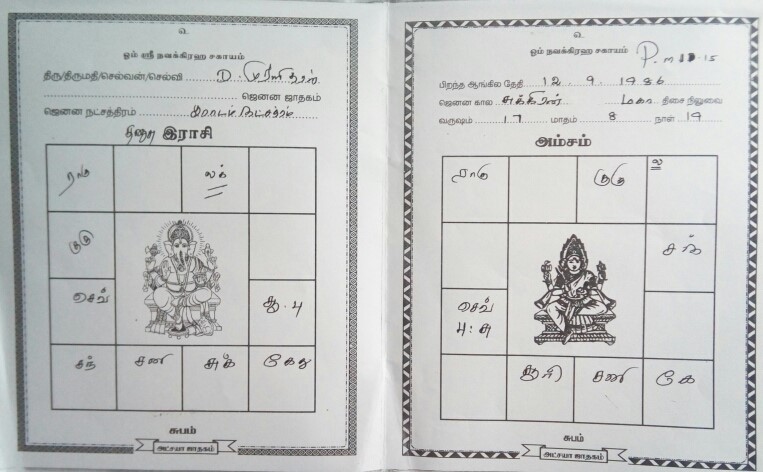 உ
ஓம் ஸ்ரீ நவக்கிரஹ சகாயம்
திரு/திருமதி/செல்வன்/செல்வி D. முரளிதரன்
ஜெனன ஜாதகம்
ஜெனன நட்சத்திரம்
இராசி
ராகு
லக்
குரு
செவ்
சூ. பு
சந்
சனி
சுக்
கேது
சுபம்
அட்சயா ஜாதகம்
உ
ஓம் நவக்கிரஹ சகாயம்
பிறந்த ஆங்கில தேதி 12. 9. 1986
ஜெனன கால சுக்கிரன் மகா திசை நிலுவை
வருஷம் 17 மாதம் 8 நாள் 19
அம்சம்
ராகு
குரு
ல
சந்
செவ்
பு. சு
சூரி
சனி
கே
சுபம்
அட்சயா ஜாதகம்